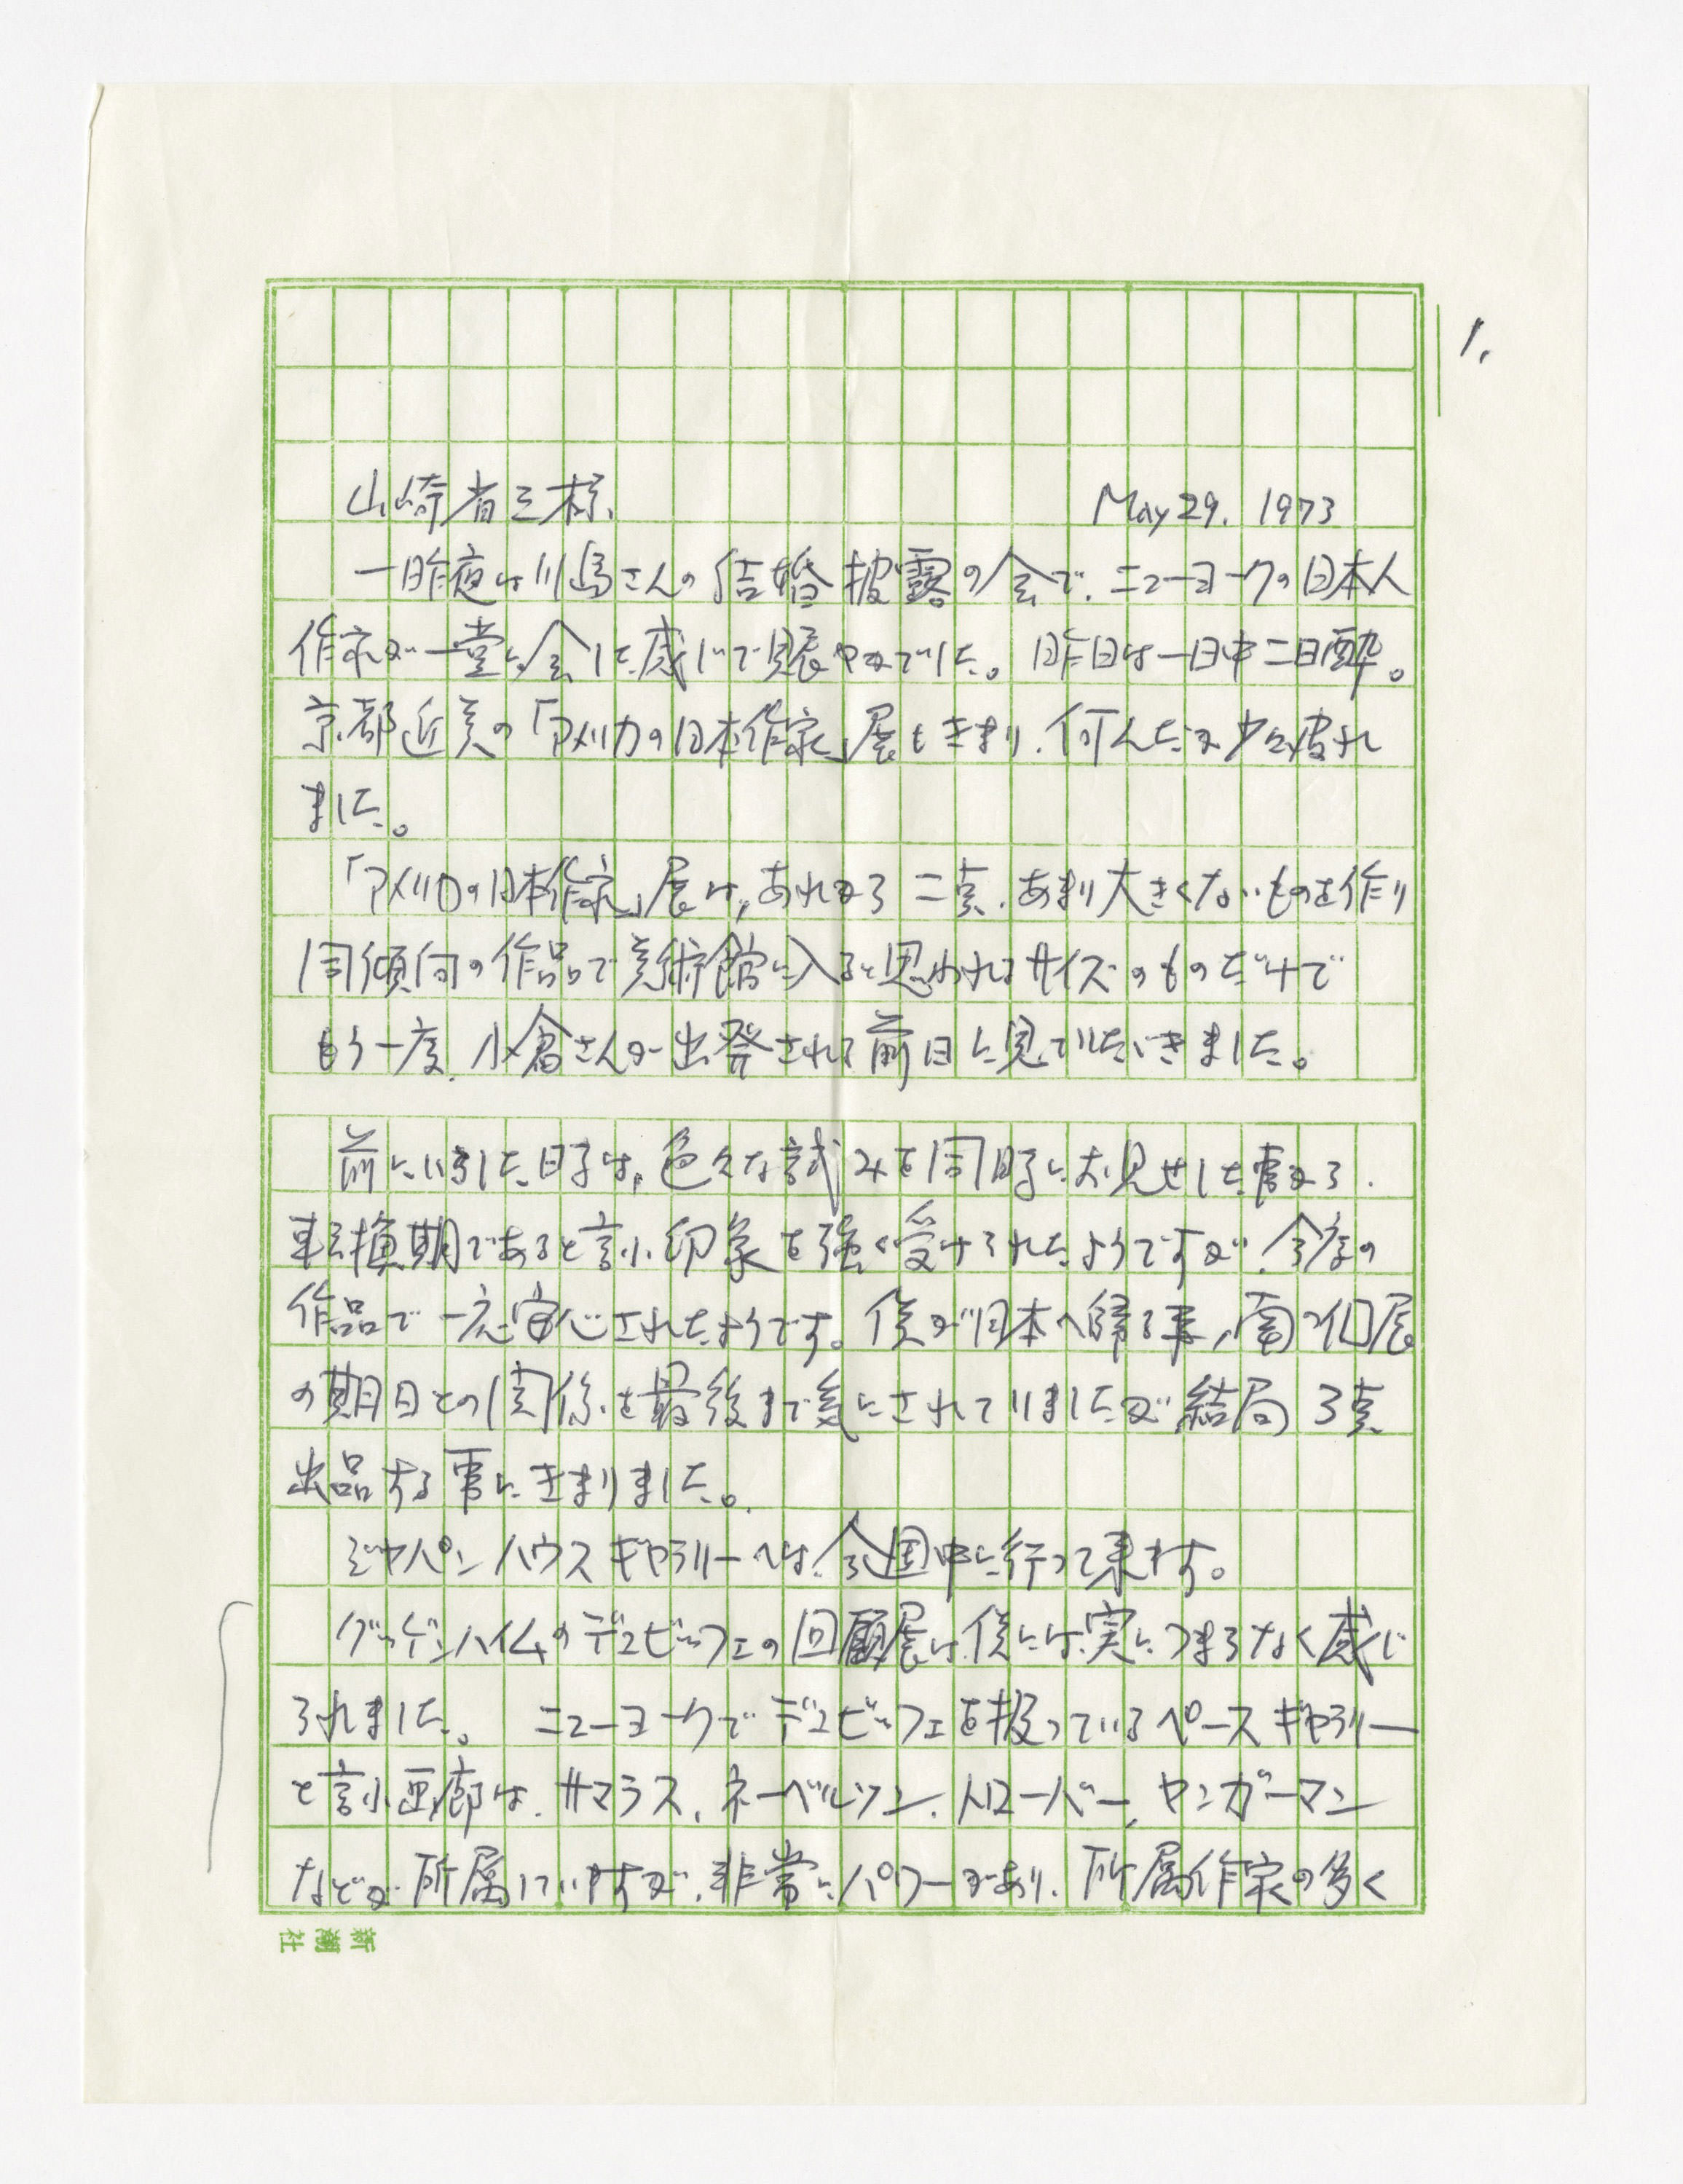 1.
山崎省三様、 May 29. 1973
一昨夜は川島さんの結婚披露の会で、ニューヨークの日本人
作家が一堂に会した感じで賑やかでした。昨日は一日中二日酔。
京都近美の「アメリカの日本作家」展もきまり、何んだか少々疲れ
ました。
「アメリカの日本作家」展は、あれから二点、あまり大きくないものを作り
同傾向の作品で美術館に入ると思われるサイズのものだけで
もう一度、小倉さんが出発される前日に見ていただきました。
前にいらした時は、色々な試みを同時にお見せした事から、
転換期であると言う印象を強く受けられたようですが、今度の
作品で一応安心されたようです。僕が日本へ帰る事、南の個展
の期日との関係を最後まで気にされていましたが結局3点
出品する事にきまりました。
ジャパン ハウス ギャラリーへは、今週中に行って来ます。
グッゲンハイムのデュビッフェの回顧展は、僕には、実につまらなく感じ
られました。 ニューヨークでデュビッフェを扱っているペース ギャラリー
と言う画廊は、サマラス、ネーベルソン、トローバー、ヤンガーマン
などが所属していますが、非常にパワーがあり、所属作家の多く
新潮社